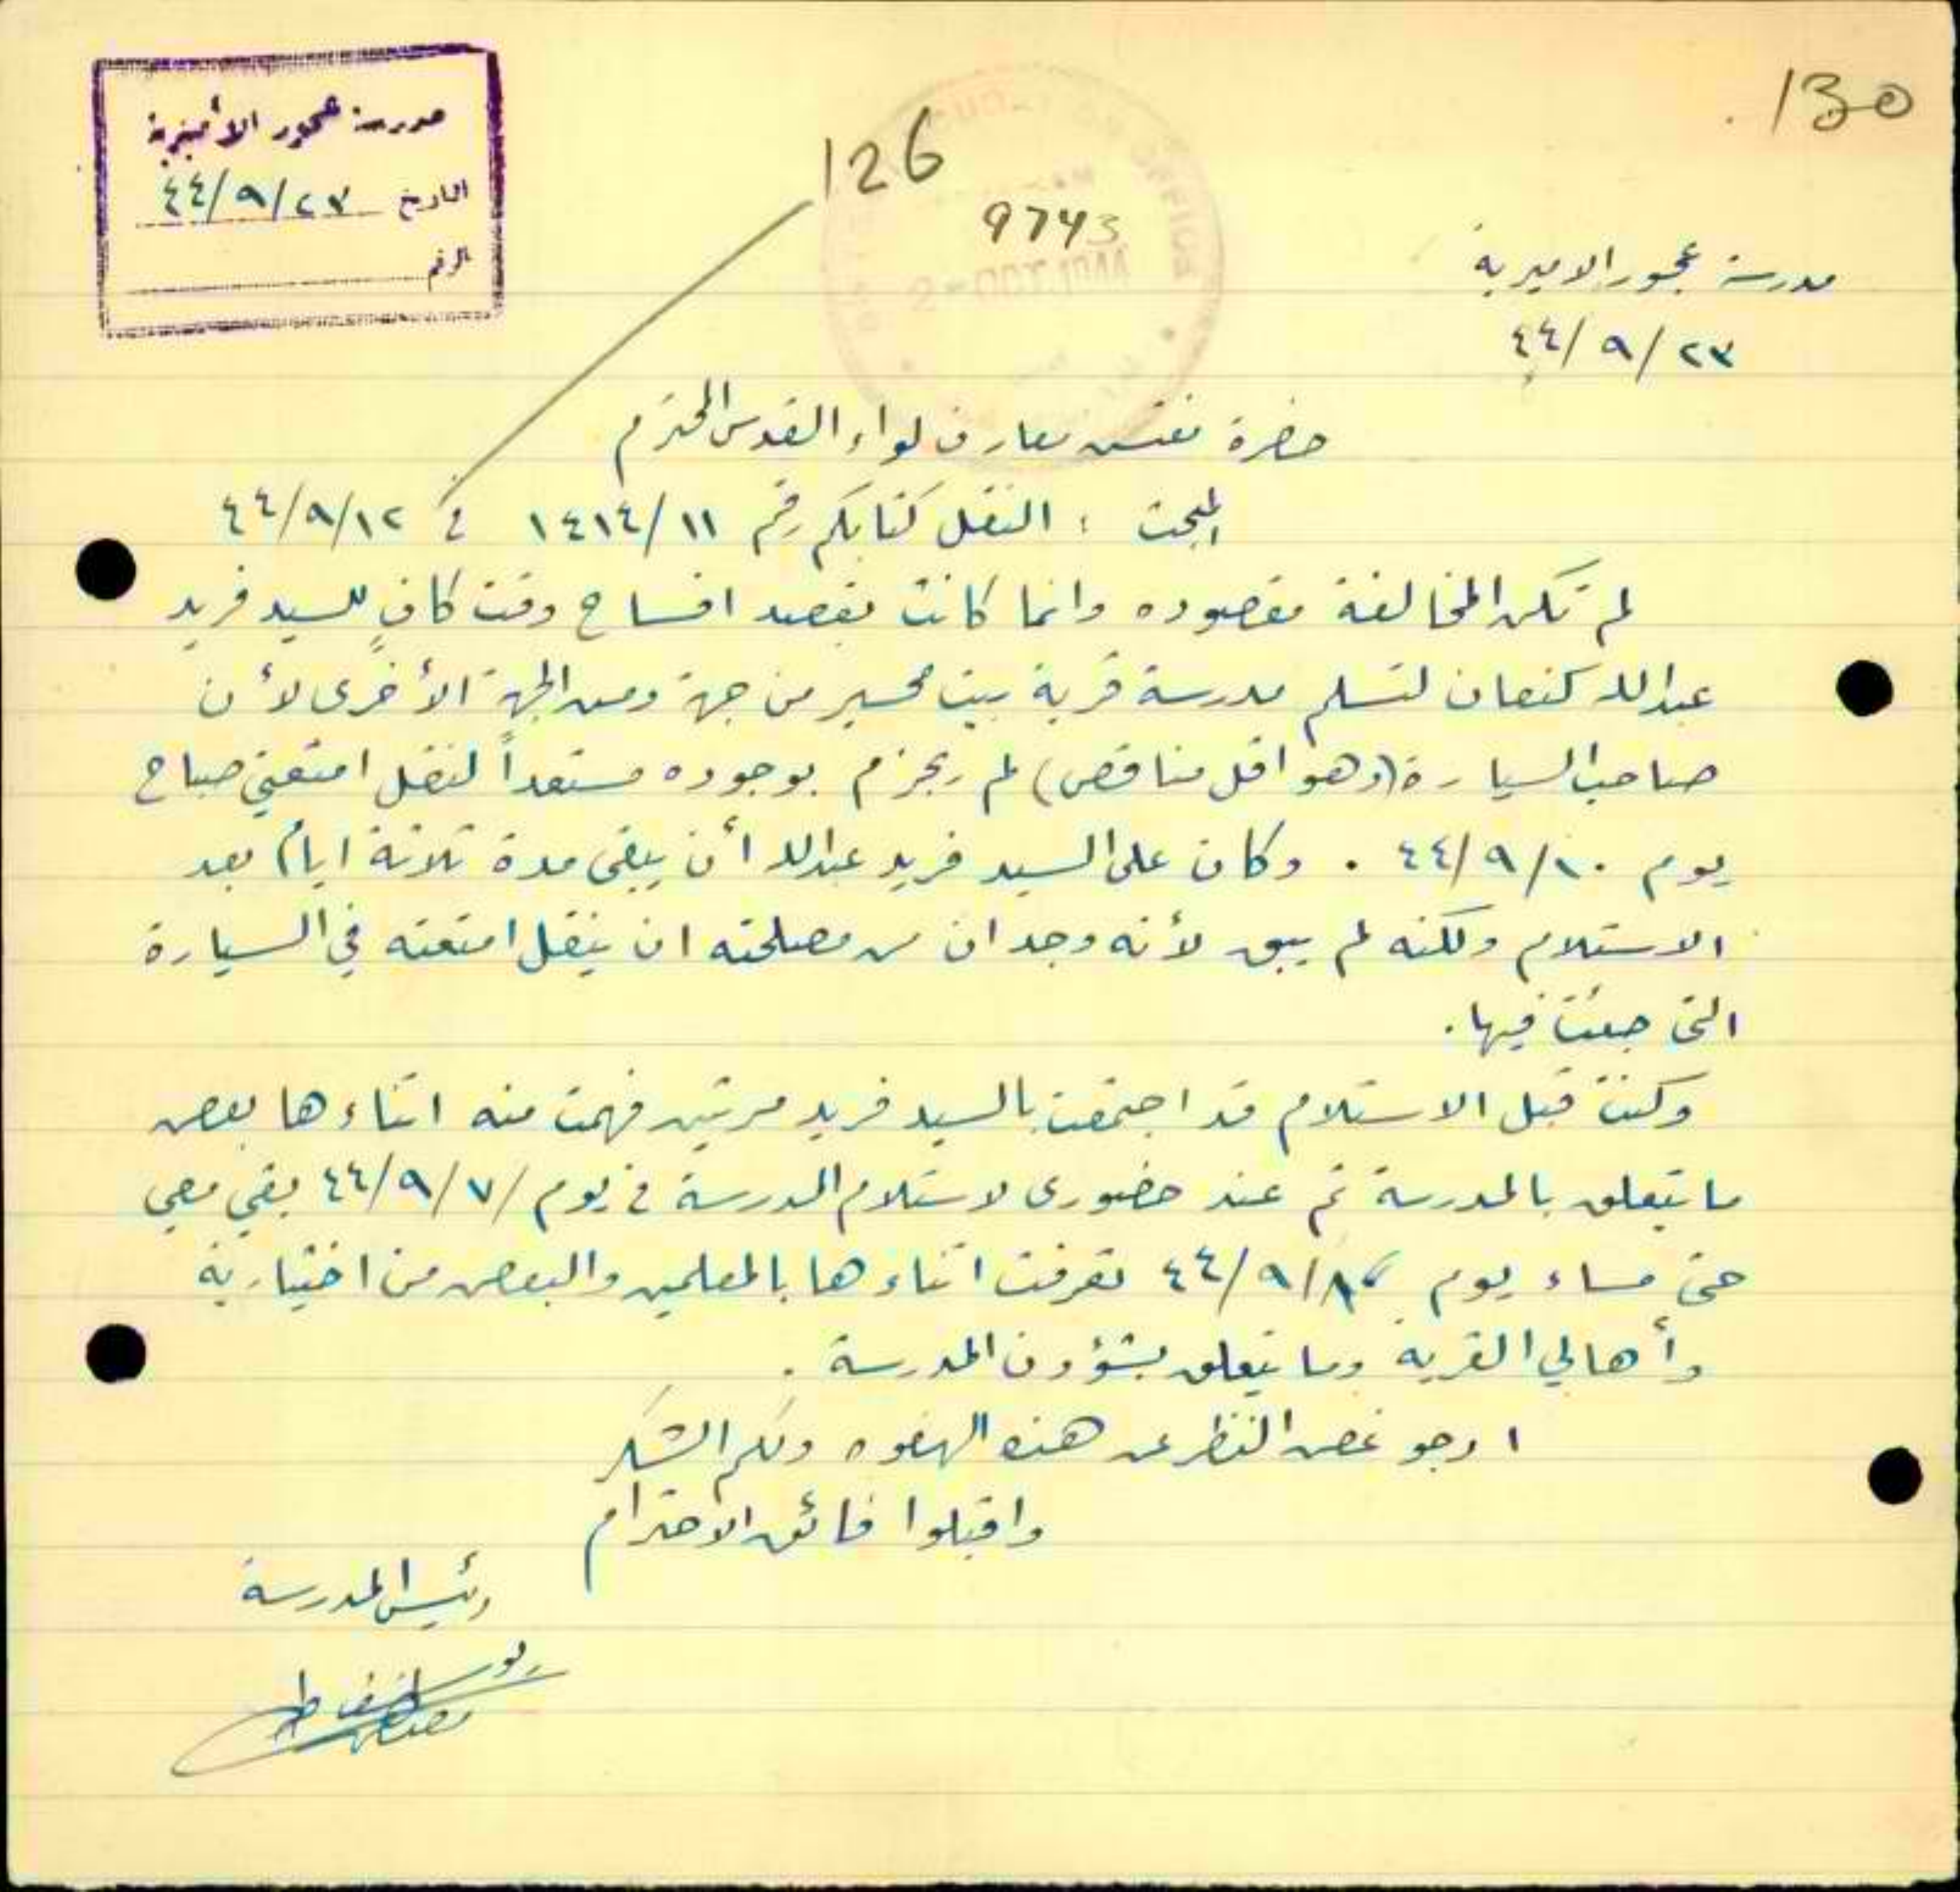 130
126
9743
2-OCT.1944
مدرسة عجور الأميرية
التاريخ ٤٤/٩/٢٣
الرقم
مدرسة عجور الاميرية
٤٤/٩/٢٣
حضرة مفتش معارف لواء القدس المحترم
المبحث : النقل كتابكم رقم ١٤١٤/١١ في ٤٤/٩/١٢
لم تكن المخالفة مقصوده وانما كانت بقصد افساح وقت كافٍ للسيد فريد
عبدالله كنعان لتسلم مدرسة قرية بيت محسير من جهة ومن الجهة الأخرى لأن
صاحب السيارة (وهو اقل مناقص) لم يجزم بوجوده مستعداً لنقل امتعتي صباح
يوم ٤٤/٩/١٠ . وكان على السيد فريد عبدالله أن يبقى مدة ثلاثة ايام بعد
الاستلام ولكنه لم يبق لأنه وجد ان من مصلحته ان ينقل امتعته في السيارة
التي جئت فيها .
وكنت قبل الاستلام قد اجتمعت بالسيد فريد مرتين فهمت منه اثناءها بعض
ما يتعلق بالمدرسة ثم عند حضوري لاستلام المدرسة في يوم ٤٤/٩/٧ بقي معي
حتى مساء يوم ٤٤/٩/٨ تعرفت اثناءها بالمعلمين والبعض من اختيارية
وأهالي القرية وما يتعلق بشؤون المدرسة .
ارجو غض النظر عن هذه الهفوه ولكم الشكر
واقبلوا فائق الاحترام
رئيس المدرسة